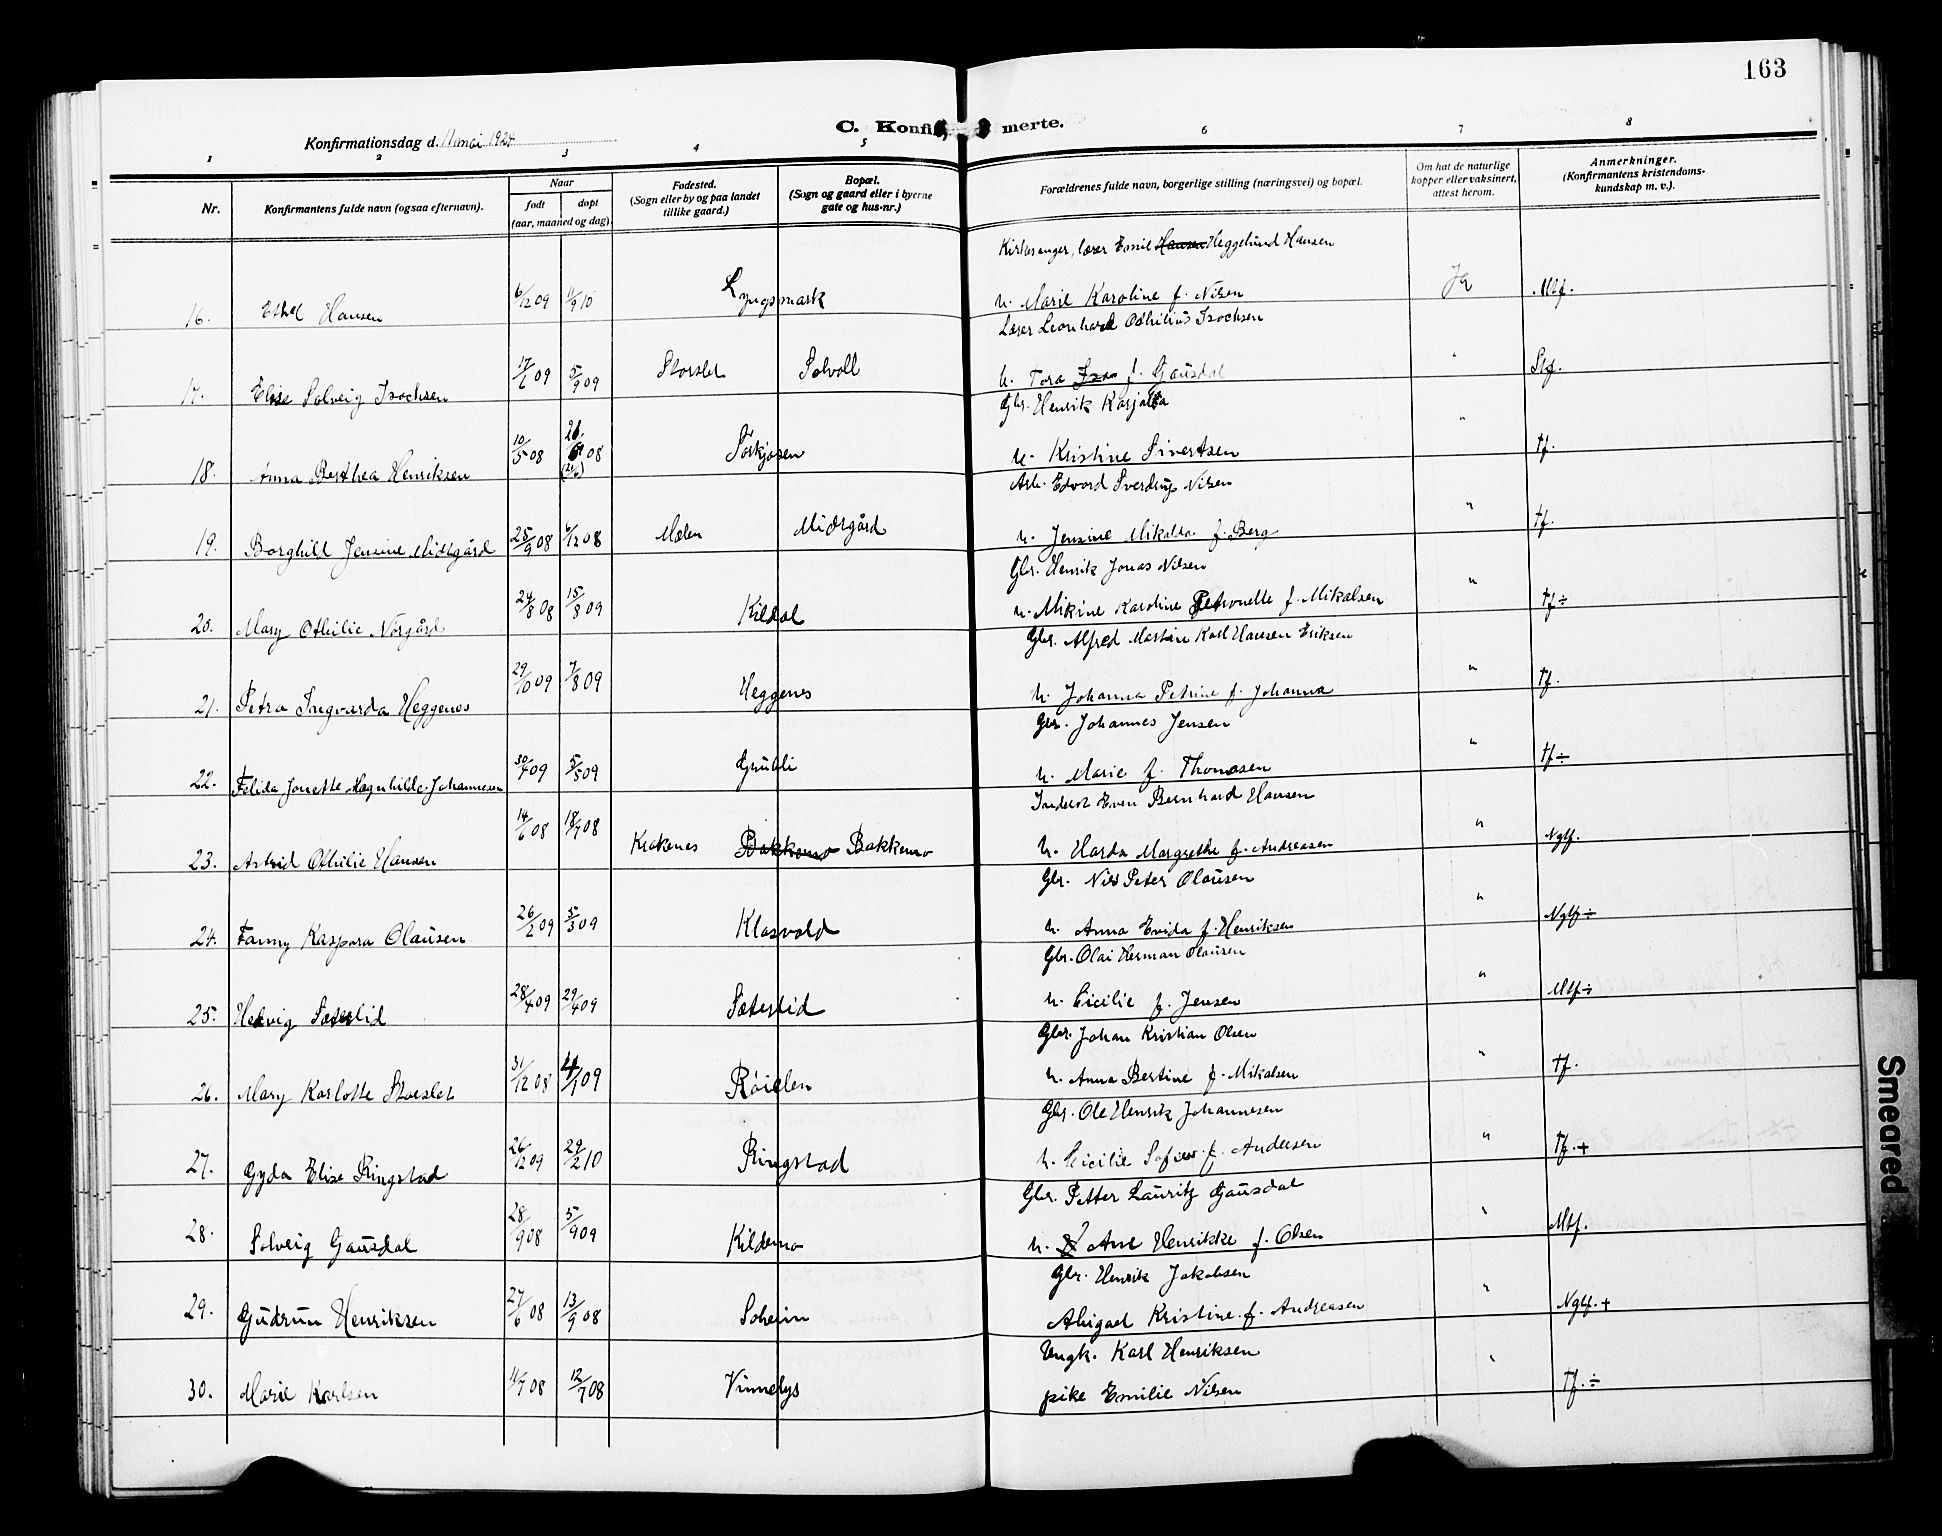 163
C. Konfi merte.
Konfirmationsdag d. 11 mai 1924
1 2 3 4 5 6 7 8
Nr.
Konfirmantens fulde navn (ogsaa efternavn).
Naar
født
døpt
(aar, maaned og dag).
Fødested.
(Sogn eller by og paa landet
tillike gaard.)
Bopæl.
(Sogn og gaard eller i byerne
gate og hus-nr.)
Forældrenes fulde navn, borgerlige stilling (næringsvei) og bopæl.
Om hat de naturlige
kopper eller vaksinert,
attest herom.
Anmerkninger.
(Konfirmantens kristendoms-
kundskap m. v.).
Kirkesanger, lærer Emil Hansen Heggelund Hansen
16. Ethel Hansen 6/12 09 11/9 10 Lyngsmark u. Marie Karoline f. Nilsen Ja Mtf.
Lærer Leonhard Othilius Isochsen
17. Elise Solveig Isochsen 17/6 09 5/9 09 Storslet Solvoll u. Tora f. Gausdal " Stf.
Gbr. Henrik Karjala
18. Anna Berthea Henriksen 10/5 08 21/6 08 (21/6) Sørkjosen u. Kristine Sivertsen " Tf.
Arb. Edvard Sverdrup Nilsen
19. Borghild Jensine Midtgård 25/9 08 6/12 08 Mælen Midtgård u. Jensine Mikalda f. Berg " Tf.
Gbr. Henrik Jonas Nilsen
20. Mary Othilie Norgård 24/8 08 15/8 09 Kildal u. Mikine Karoline Petronelle f. Mikalsen " Tf ÷
Gbr. Alfred Martin Karl Hansen Eriksen
21. Petra Ingvarda Heggenes 29/10 09 7/8 09 Heggenes u. Johanna Petrine f. Johanna " Tf.
Gbr. Johannes Jensen
22. Felida Jonette Magnhilde Johannesen 30/4 09 5/5 09 Grubli u. Marie f. Thomasen " Tf ÷
Inderst Even Bernhard Hansen
23. Astrid Othilie Hansen 14/6 08 18/7 08 Krakenes Bakkemo Bakkemo u. Harda Margrethe f. Andreasen " Ngtf.
Gbr. Nils Peter Olausen
24. Fanny Kaspara Olausen 26/2 09 5/3 09 Klasvold u. Anna Evida f. Henriksen " Ngtf ÷
Gbr. Olai Herman Olausen
25. Hedvig Sæterlid 28/4 09 29/4 09 Sæterlid u. Cicilie f. Jensen " Mtf ÷
Gbr. Johan Kristian Olsen
26. Mary Karlotte Storslet 31/12 08 4/1 09 Røielen u. Anna Bertine f. Mikalsen " Tf.
Gbr. Ole Henrik Johannesen
27. Gyda Elise Ringstad 26/12 09 29/2 10 Ringstad u. Cicilie Sofie f. Andersen " Tf. +
Gbr. Petter Lauritz Gausdal
28. Solveig Gausdal 28/9 08 5/9 09 Kildemo u. Ane Henrikke f. Olsen " Mtf.
Gbr. Henrik Jakobsen
29. Gudrun Henriksen 27/6 08 13/9 08 Solheim Abigael Kristine f. Andreasen " Ngtf. +
Ungk. Karl Henriksen
30. Marie Karlsen 4/7 08 12/7 08 Vinnelys pike Emilie Nilsen " Tf. ÷
Smeared